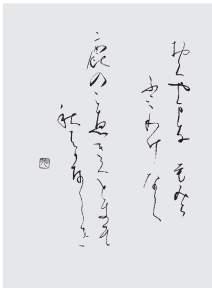 おくやまに もみち
ふみわけ なく
鹿のこゑきくときそ
秋はかなしき